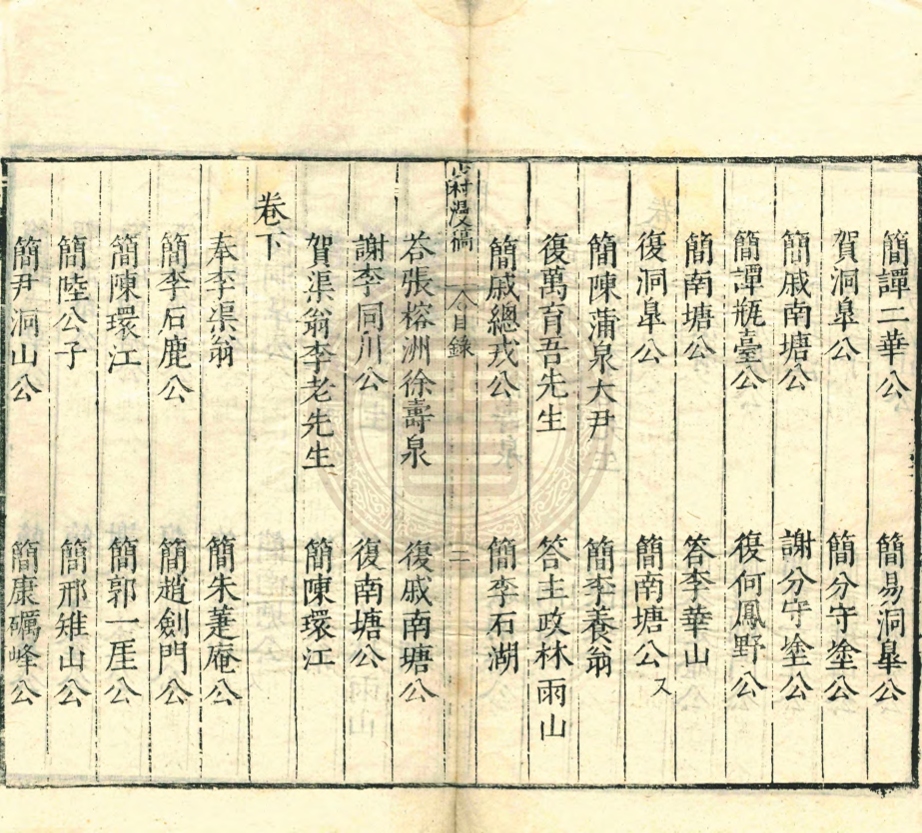 簡譚二華公　簡易洞皐公
賀洞皐公　簡分守塗公
簡戚南塘公　謝分守塗公
簡譚瓶臺公　復何鳳野公
簡南塘公　答李華山
復洞皐公　簡南塘公又
簡陳蒲泉大尹　簡李養翁
復萬育吾先生　答主政林雨山
簡戚總戎公　簡李石湖
山村漫稿　目錄　二
荅張榕洲徐壽泉　復戚南塘公
謝李同川公　復南塘公
賀渠翁李老先生　簡陳環江
卷下
奉李渠翁　簡朱蓮庵公
簡李石鹿公　簡趙劍門公
簡陳環江　簡郭一厓公
簡陸公子　簡邢雉山公
簡尹洞山公　簡康礪峰公